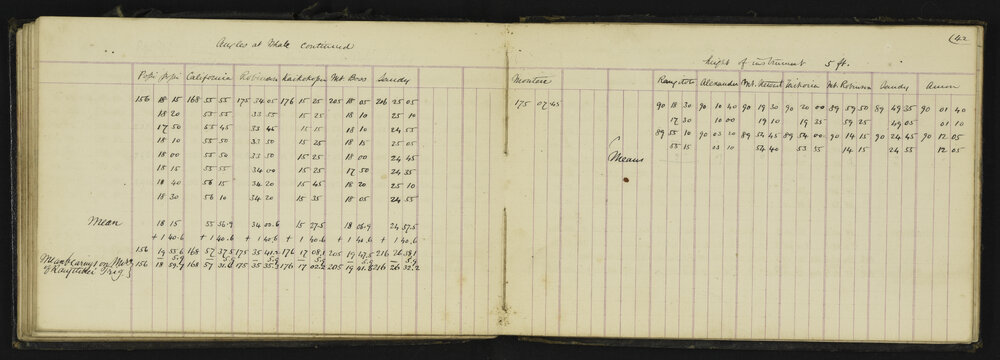 Angles at Whale continued
Popi popi California Robinson Mt Boss Sandy
156 18 15 168 55 55 175 34 05 176 15 25 205 18 05 216 25 05
18 20 55 55 33 55 15 25 18 10 25 10
17 50 55 45 33 45 15 15 18 10 24 55
18 10 55 50 33 50 15 25 18 15 25 05
18 00 55 50 33 50 15 25 18 00 24 45
18 15 55 55 34 00 15 25 17 50 24 35
18 40 56 15 34 20 15 45 18 20 25 10
18 30 56 10 34 20 15 35 18 05 24 55
Mean 18 15 55 56.9 34 00.6 15 27.5 18 06.9 24 57.5
+ 1 40.6 + 1 40.6 + 1 40.6 + 1 40.6 + 1 40.6 + 1 40.6
156 19 55.6 168 57 37.5 175 35 41.2 176 17 08.1 205 19 47.5 216 26 38.1
5.9 5.9 5.9 5.9 5.9 5.9
Mean bearings on Mer.
of Rangitikei Trig.} 156 18 59.7 168 57 31.6 175 35 35.3 176 17 02.2 205 19 41.6 216 26 32.2
42
height of instrument 5 ft.
175 07 45
Alexander Mt Robinson Sandy
90 18 30 90 10 40 90 19 30 90 20 00 89 59 50 89 49 35 90 01 40
17 30 10 00 19 10 19 35 59 25 49 05 01 10
89 55 10 90 03 20 89 54 45 89 54 00 90 14 15 90 24 45 90 12 05
55 15 03 10 54 40 53 55 14 15 24 55 12 05
(Means